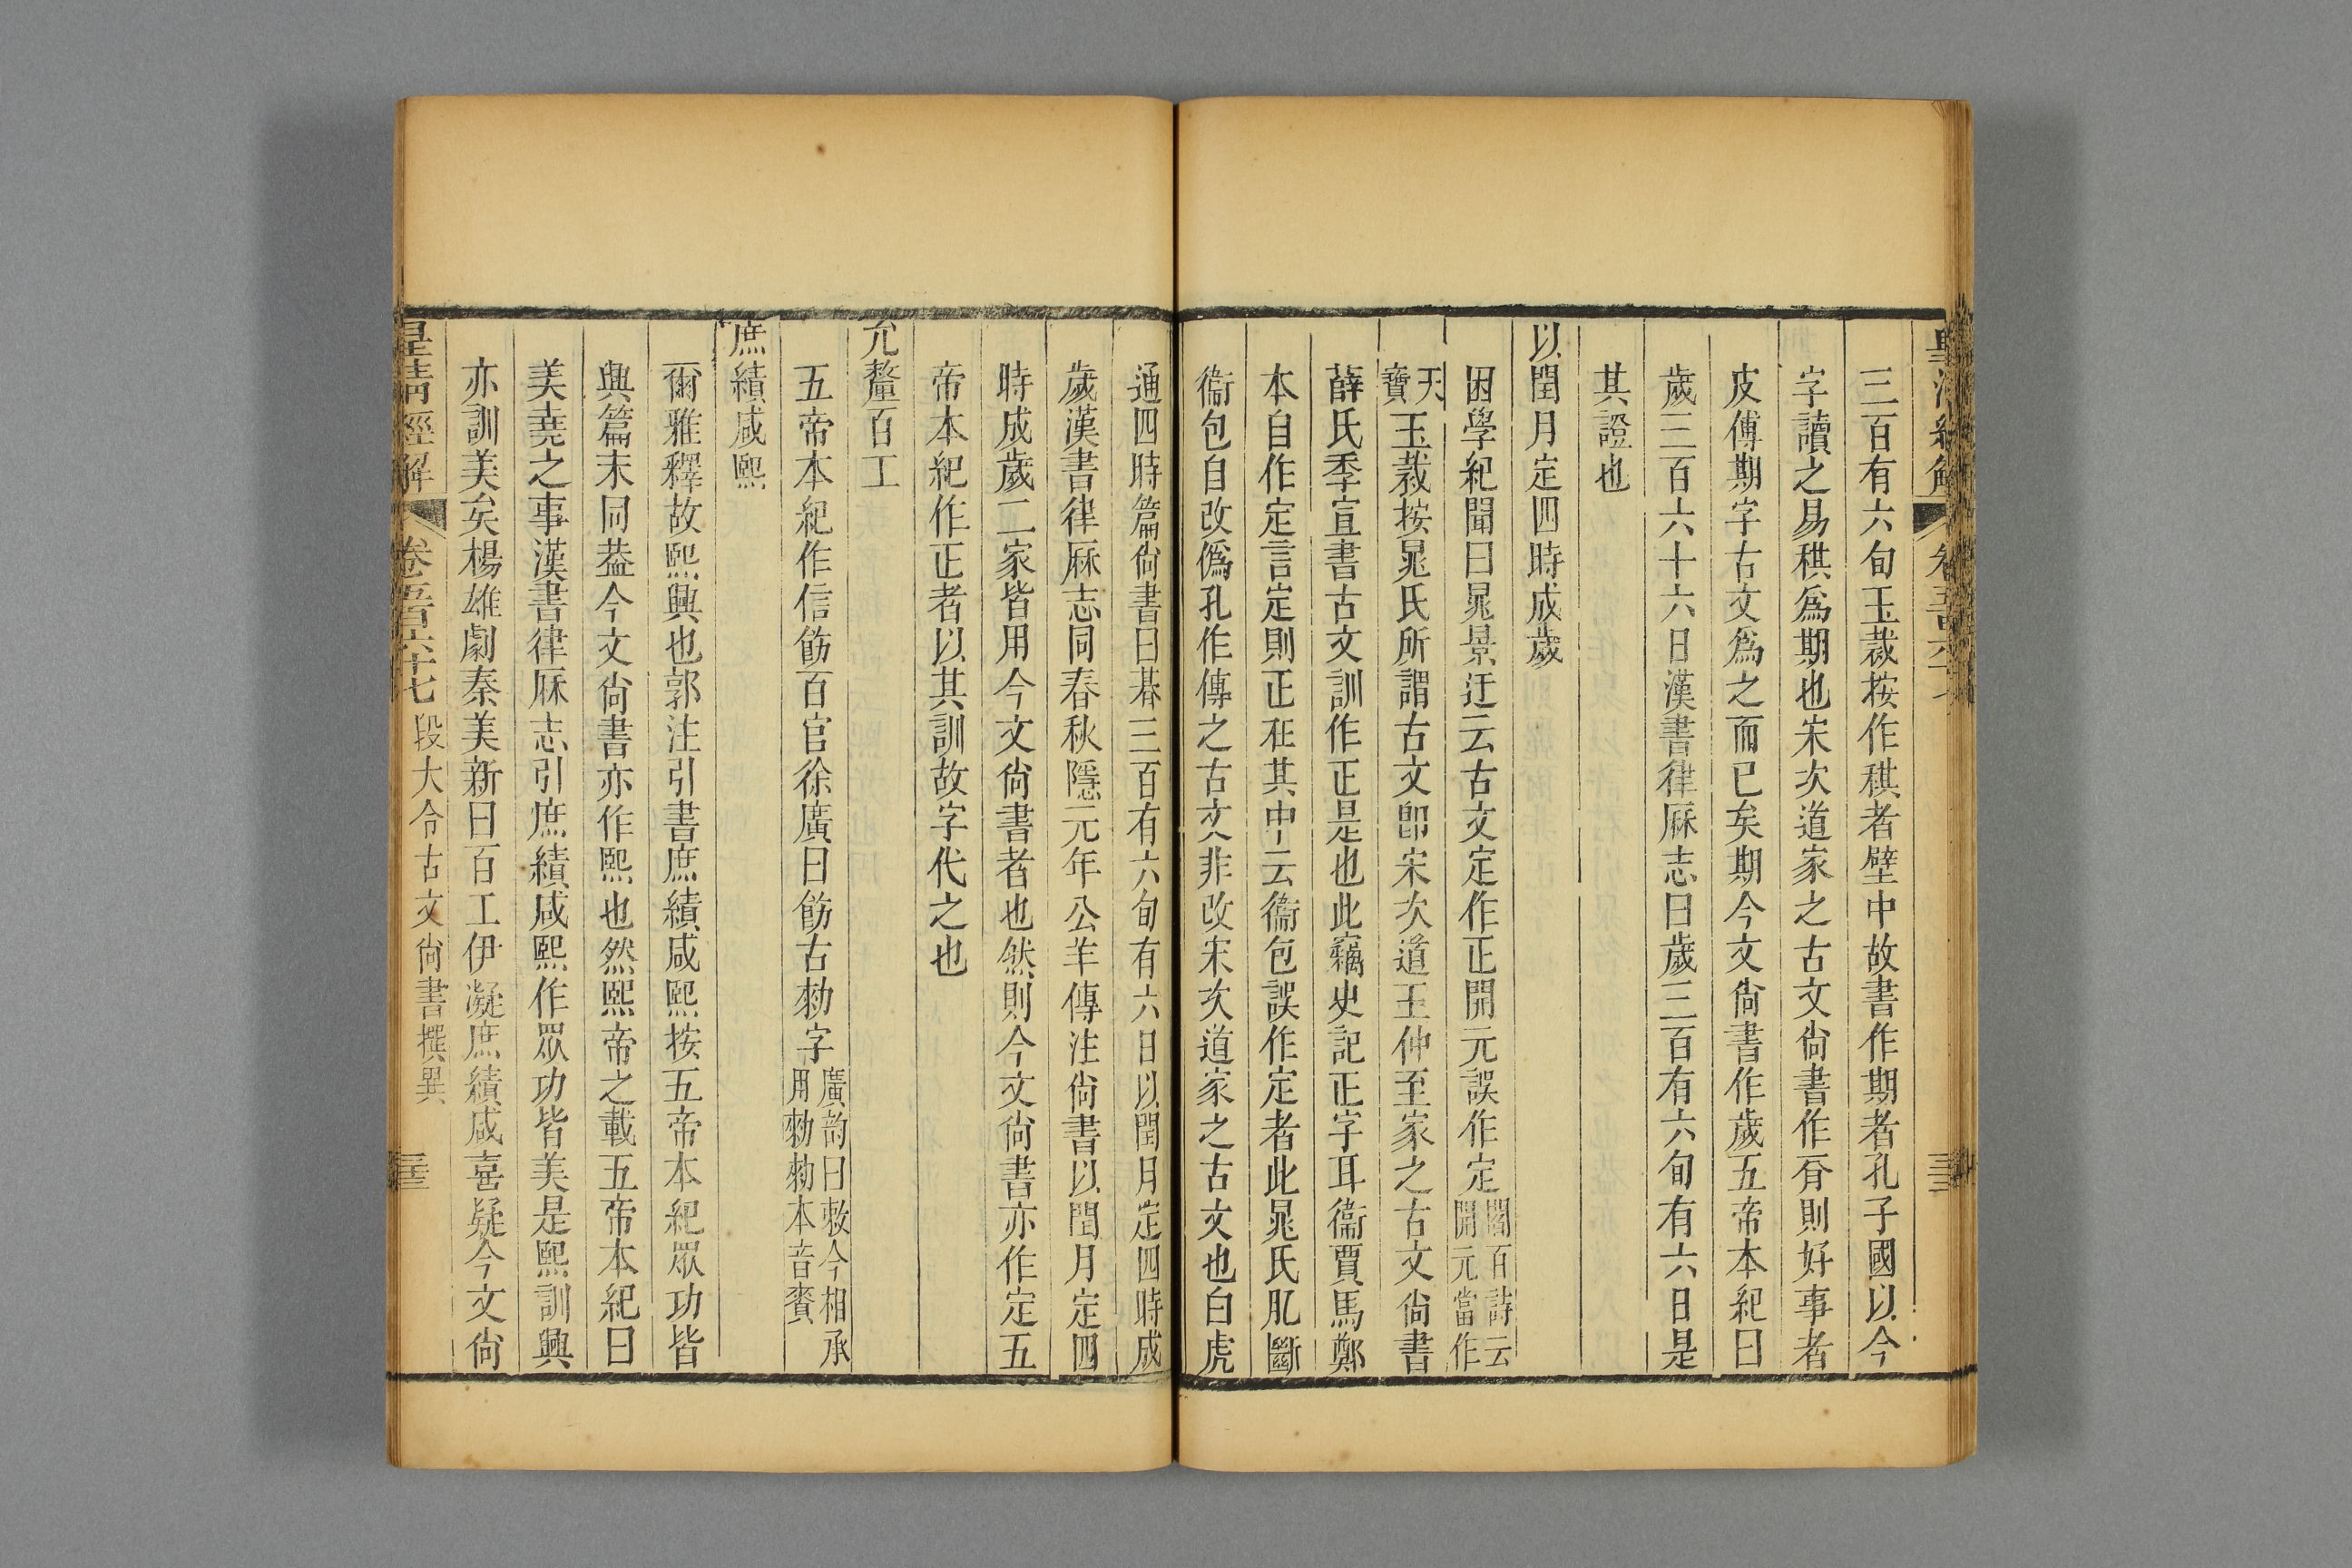 三百有六旬玉裁按作稘者壁中故書作期者孔子國以今
字讀之易稘爲期也宋次道家之古文尙書作𠔃則好事者
皮傅期字古文爲之而已矣期今文尙書作歲五帝本紀曰
歲三百六十六日漢書律厤志曰歲三百有六旬有六日是
其證也
以閏月定四時成歲
困學紀聞曰晁景迂云古文定作正開元誤作定閻百詩云開元當作
天寶玉裁按晁氏所謂古文卽宋次道王仲至家之古文尙書
薛氏季宣書古文訓作正是也此竊史記正字耳衞賈馬鄭
本自作定言定則正在其中云衞包誤作定者此晁氏肊斷
衞包自改僞孔作傳之古文非改宋次道家之古文也白虎
通四時篇尙書曰朞三百有六旬有六日以閏月定四時成
歲漢書律厤志同春秋隱元年公羊傳注尙書以閏月定四
時成歲二家皆用今文尙書者也然則今文尙書亦作定五
帝本紀作正者以其訓故字代之也
允釐百工
五帝本紀作信飭百官徐廣曰飭古勑字廣韵曰敕今相承用勑勑本音賚
庶績咸熙
爾雅釋故熙興也郭注引書庶績咸熙按五帝本紀眾功皆
興篇末同葢今文尙書亦作熙也然熙帝之載五帝本紀曰
美堯之事漢書律厤志引庶績咸熙作眾功皆美是熙訓興
亦訓美矣楊雄劇秦美新曰百工伊凝庶績咸喜疑今文尙
皇清經解 卷五百六十七 段大令古文尙書撰異